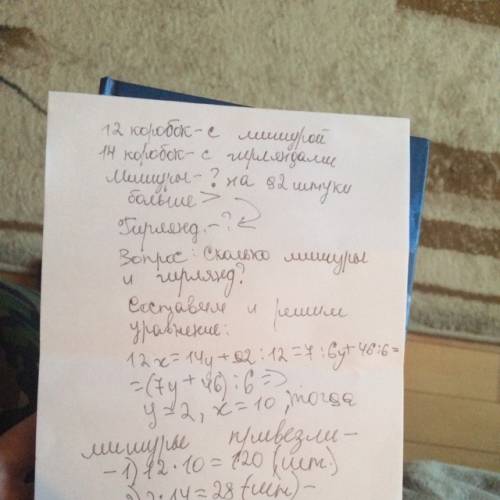 12 коробок - с мишурой
14 коробок - с гирляндами
Мишуры - ? на 92 штуки
больше >
Гирлянд. - ?
Вопрос: Сколько мишуры
и гирлянд?
Составим и решим
уравнение:
12x = 14y + 92 : 12 = 7 : 6y + 46 : 6 =
= (7y + 46) : 6 =>
y = 2, x = 10, тогда
мишуры привезли -
- 1) 12 · 10 = 120 (шт.)
2) 2 · 14 = 28 (шт) -